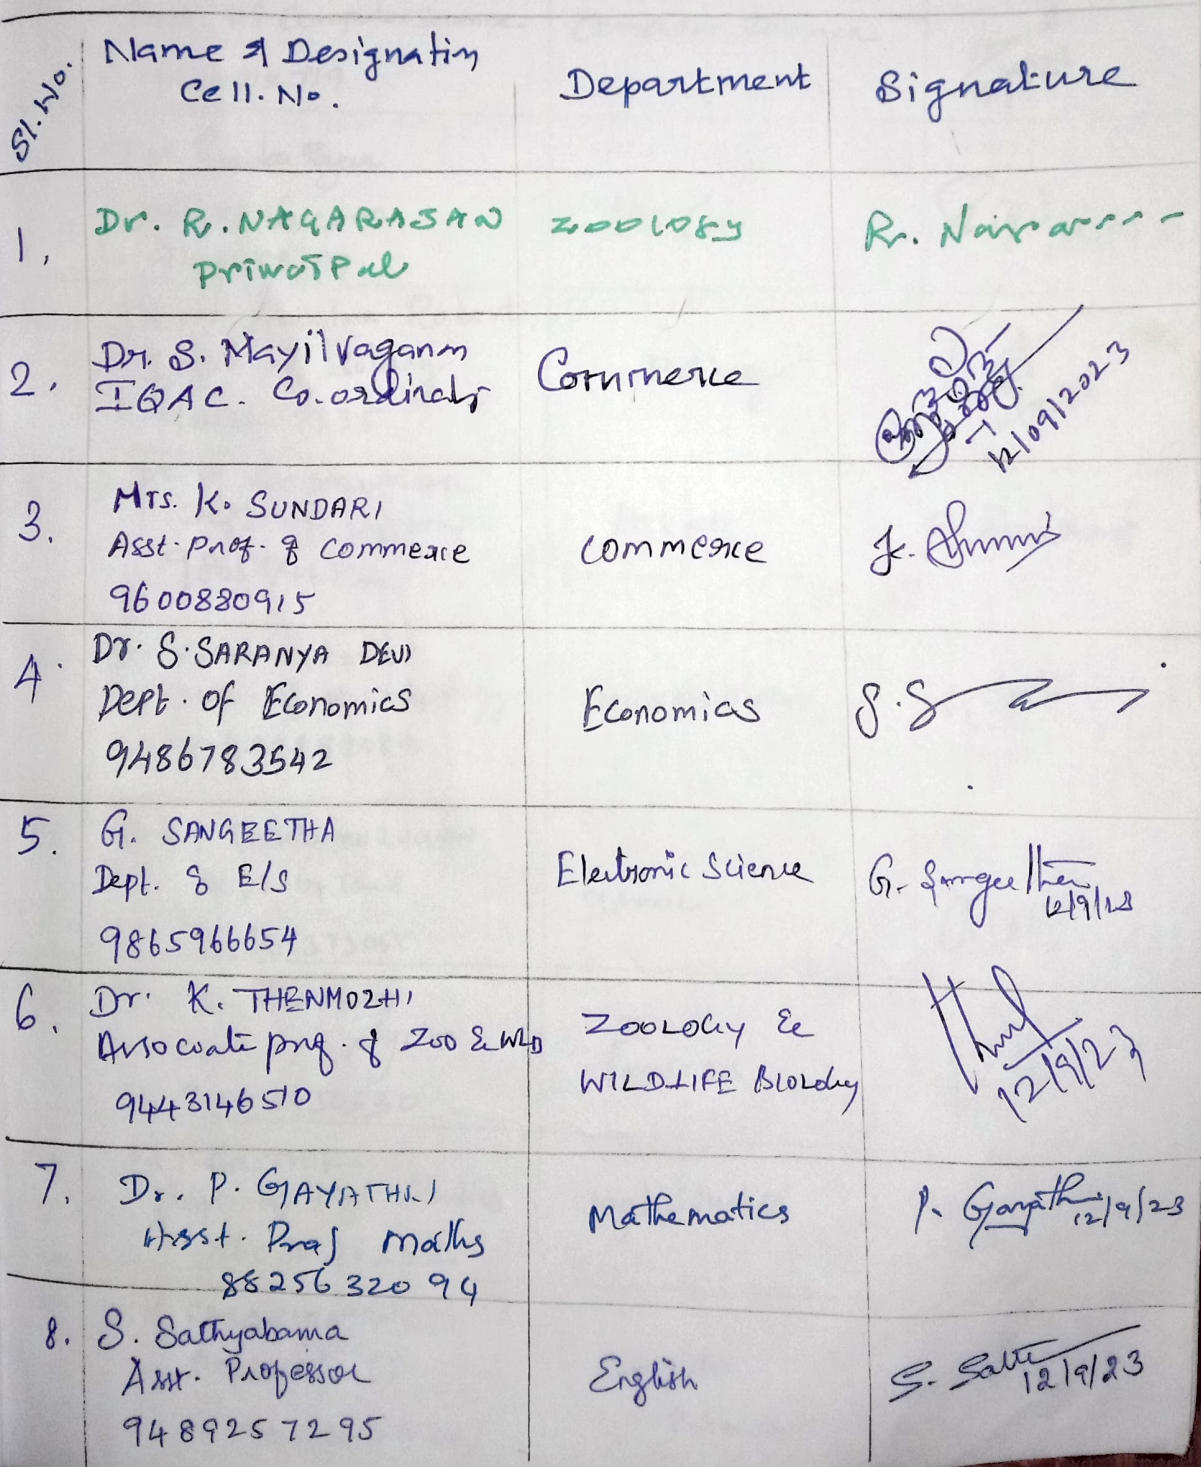 Sl. No.
Name & Designation
Cell. No.
Department
Signature
1,
Dr. R. NAGARAJAN
Principal
Zoology
2.
Dr. S. Mayilvaganan
IQAC. Co.ordinator
Commerce
12/09/2023
3.
Mrs. K. SUNDARI
Asst. Prof. of Commerce
9600880915
Commerce
4.
Dr. S. SARANYA DEVI
Dept. of Economics
9486783542
Economics
S. S
5.
G. SANGEETHA
Dept. of E/S
9865966654
Electronic Science
G. Sangeetha
12/9/23
6.
Dr. K. THENMOZHI
Associate prof. of Zoo & WLB
9443146510
ZOOLOGY &
WILDLIFE BIOLOGY
12/9/23
7.
Dr. P. GAYATHRI
Asst. Prof Maths
88256 320 94
Mathematics
P. Gayathri 12/9/23
8.
S. Sathyabama
Asst. Professor
9489257295
English
S. Sath 12/9/23